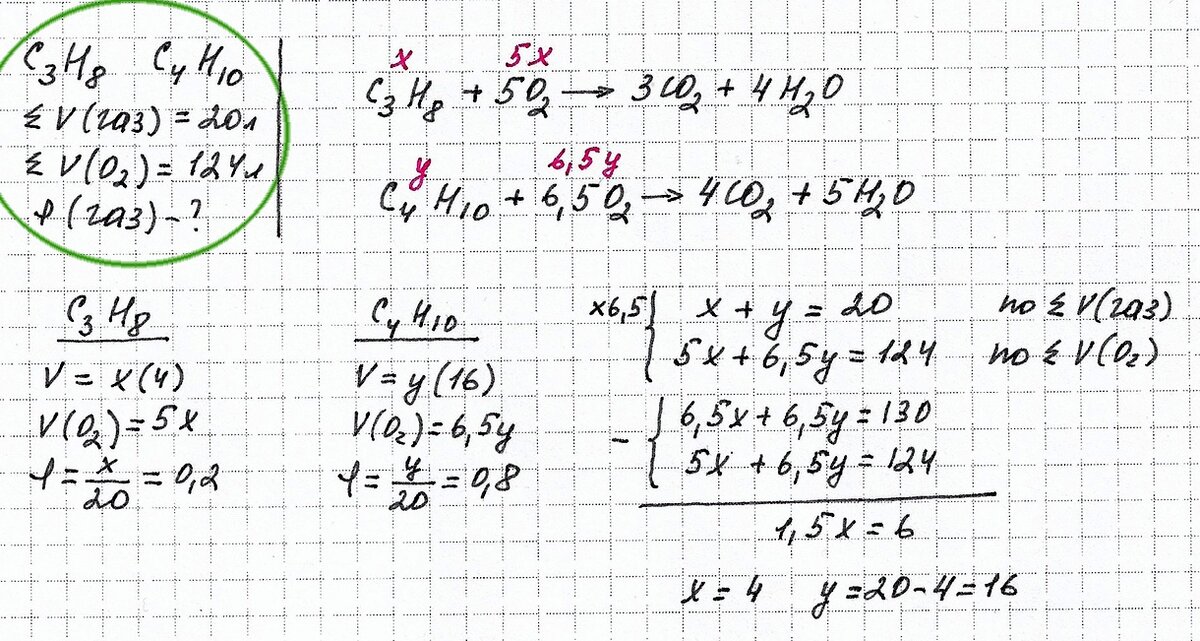 C₃H₈ C₄H₁₀
Σ V(газ) = 20л
Σ V(O₂) = 124л
φ(газ) - ?
x 5x
C₃H₈ + 5O₂ → 3CO₂ + 4H₂O
y 6,5y
C₄H₁₀ + 6,5O₂ → 4CO₂ + 5H₂O
C₃H₈
V = x(4)
V(O₂) = 5x
φ = x/20 = 0,2
C₄H₁₀
V = y(16)
V(O₂) = 6,5y
φ = y/20 = 0,8
x6,5 { x + y = 20 по Σ V(газ)
5x + 6,5y = 124 по Σ V(O₂)
- { 6,5x + 6,5y = 130
5x + 6,5y = 124
1,5x = 6
x = 4 y = 20 - 4 = 16